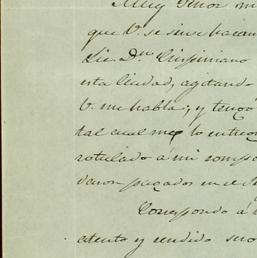 Muy Señor m
que V. se sirve hacerm
Lic. Dn. Crisriniano
esta Ciudad, agitando
V. me habla; y tengo
tal cual me lo entreg
rotulado á mi compa
denon pagados en el
Correspondo á
atento y rendido